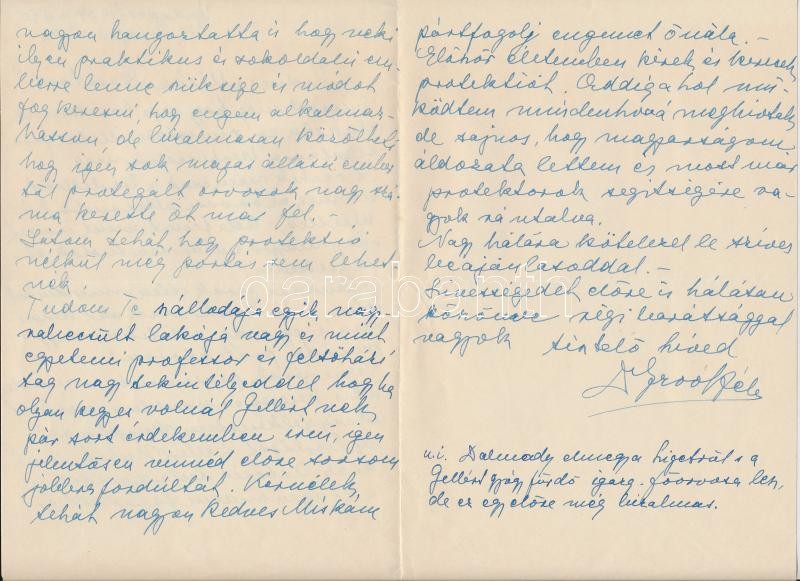 nagyon hangoztatta is hogy neki
ilyen praktikus és sokoldalú em-
berre lenne szüksége és módot
fog keresni, hogy engem alkalmaz-
hasson, de bizalmasan közölheti
hogy igen sok magas állású ember
től protegált orvosok nagy szá-
ma kereste őt már fel. –
Látom tehát, hogy protekció
nélkül még portás sem lehet
nék.
Tudom Te szállodája egyik nagy-
rabecsült lakója vagy és mint
egyetemi professor és felsőházi
tag nagy tekintélyeddel hogy ha
olyan kegyes volnál Gellért nek
pár sort érdekemben írni, igen
jelentősen vinnéd előre sorsom
jobbra fordúltát. Kérnélek
tehát nagyon kedves Miskám
pártfogolj engemet ő nála. –
Először életemben kérek és keresek
protektiót. Addig a hol mű-
ködtem mindenhová meghívtak
de sajnos, hogy magyarságom
áldozata lettem és most már
protektorok segítségére va-
gyok rá utalva.
Nagy hálára kötelezel le szíves
beajánlásoddal. –
Szívességedet előre is hálásan
köszönve régi barátsággal
vagyok tisztelő híved
Dr Groó Béla
u.i. Dalmady elmegy a szigetről s a
Gellért gyógyfürdő igazg. főorvosa lesz,
de ez egyelőre még bizalmas.
darabanth